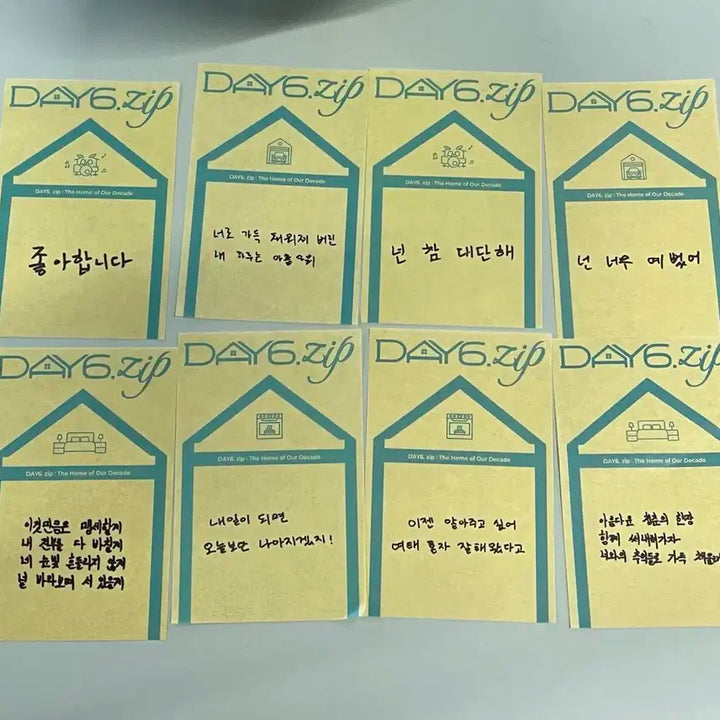 DAY6.zip
DAY6. zip : The Home of Our Decade
좋아합니다
DAY6.zip
DAY6. zip : The Home of Our Decade
너로 가득 채워져 버린
내 하루는 24
DAY6.zip
DAY6. zip : The Home of Our Decade
넌 참 대단해
DAY6.zip
DAY6. zip : The Home of Our Decade
넌 너무 예뻤어
DAY6.zip
DAY6. zip : The Home of Our Decade
이것만음은 맹세할게
내 전부를 다 바칠게
네 눈빛 흔들리지 않게
널 바라보며 서 있을게
DAY6.zip
DAY6. zip : The Home of Our Decade
내일이 되면
오늘보단 나아지겠지!
DAY6.zip
DAY6. zip : The Home of Our Decade
이젠 알아주고 싶어
여태 혼자 잘해왔다고
DAY6.zip
DAY6. zip : The Home of Our Decade
아름다운 청춘의 한 장
함께 써내려가자
너와의 추억들로 가득